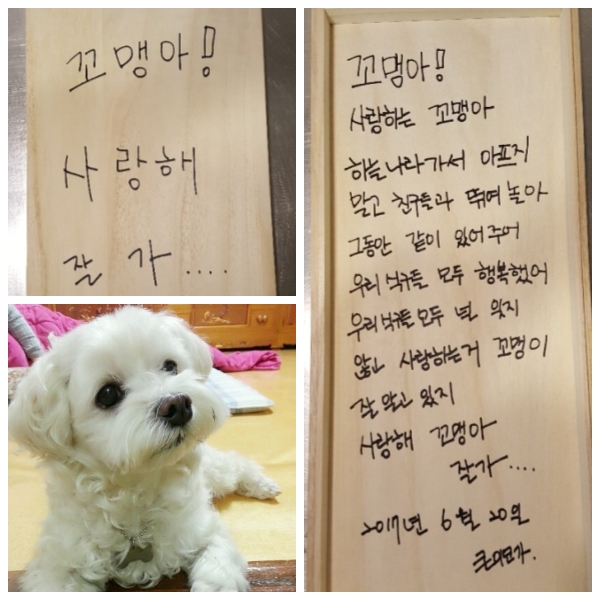 꼬맹아!
사랑해
잘가....
꼬맹아!
사랑하는 꼬맹아
하늘나라가서 아프지
말고 친구들과 뛰여놀아
그동안 같이 있어주어
우리식구들 모두 행복했어
우리식구들모두 널 잊지
않고 사랑하는거 꼬맹이
잘알고 있지
사랑해 꼬맹아
잘가....
2017년 6월 20일